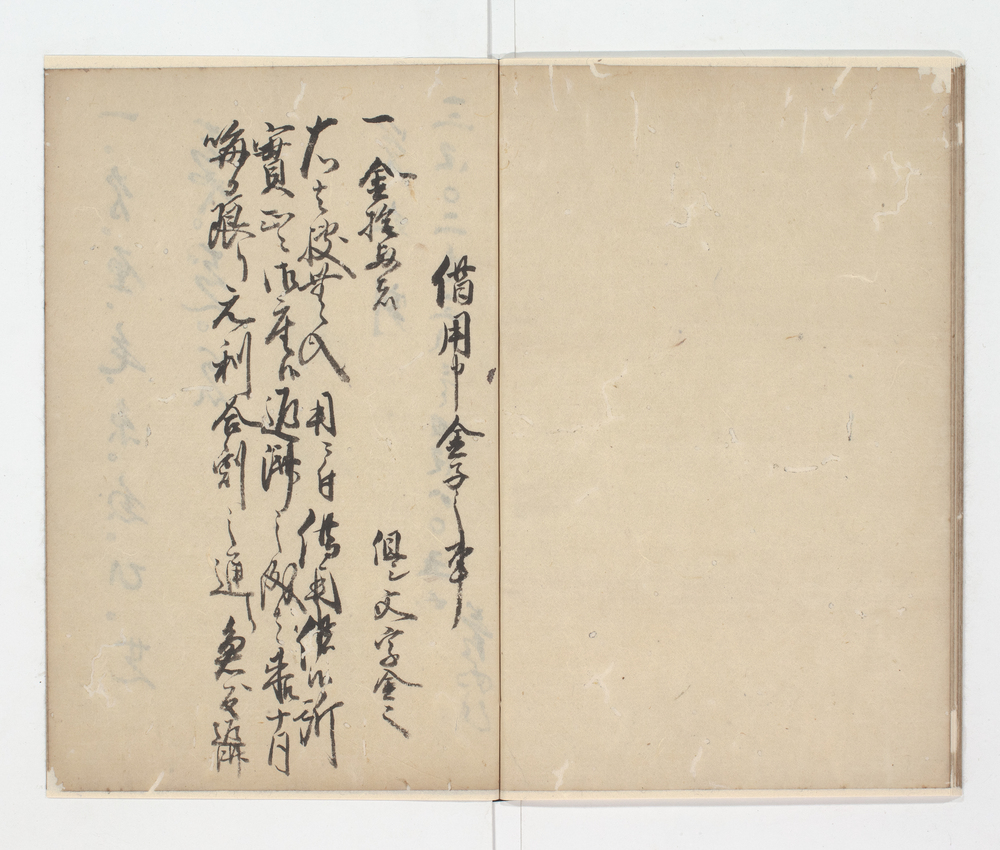 借用申金子之事
一金拾両者 但文字金也
右者拠無入用ニ付借用仕候所
實正ニ御座候返済之儀者来十月
晦日限り元利合割之通り急度返済